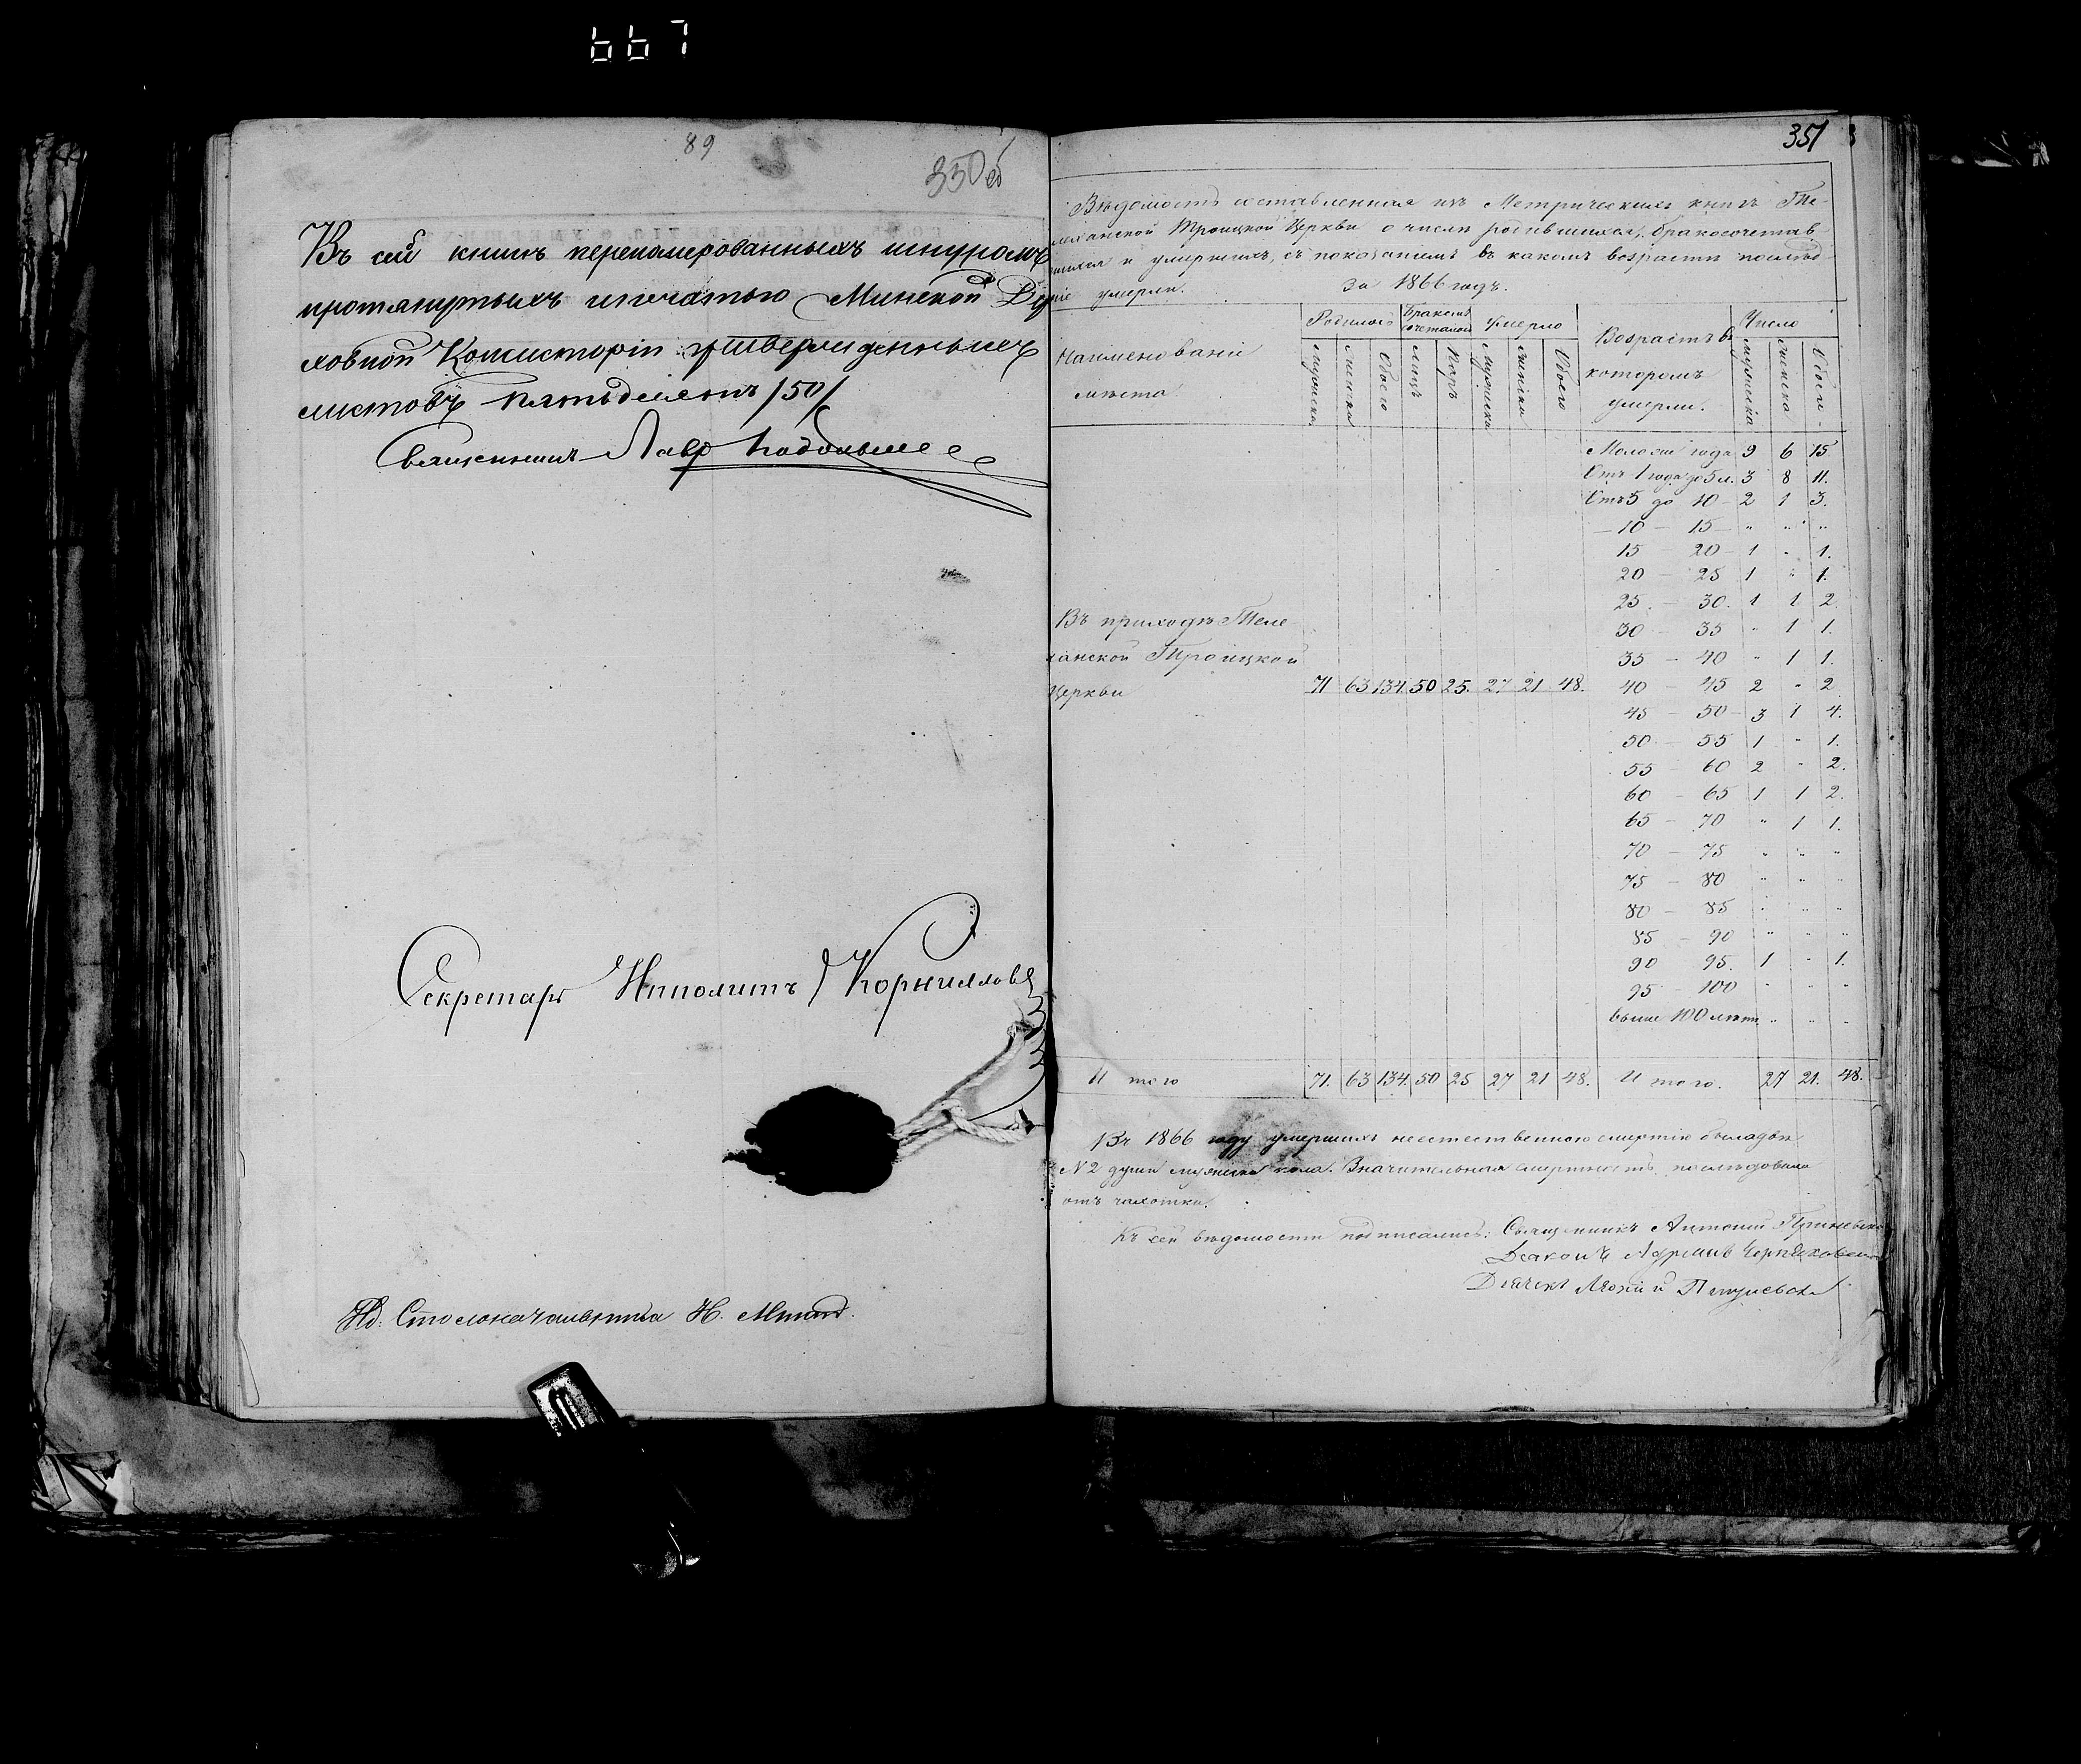 667
89
350 об
Въ сей книгѣ перенамерованныхъ шнуромъ
протянутыхъ и печатью Минской Ду
ховной Консисторіи утвержденныхъ
листовъ пятьдесятъ /50/
Священникъ Лавр
Секретарь Ипполитъ Корниловъ
Столоначальника Н.
351
Вѣдомость составленная изъ Метрическихъ книгъ Те-
леханской Троицкой Церкви о числѣ родившихся, бракосочетав-
шихся и умершихъ, съ показаніемъ въ какомъ возрастѣ послѣд
ніе умерли.
За 1866 годъ.
Наименованіе
мѣста
Родилось
Бракомъ
сочеталось
Умерло
Возрастъ въ
которомъ
умерли.
Число
Мужеска
Женска
Обоего
Лицъ
Паръ
Мужеска
Женска
Обоего
Мужеска
Женска
Обоего
Моложе года 9 6 15
Отъ 1 года до 5 л. 3 8 11.
Отъ 5 до 10 - 2 1 3.
- 10 - 15 - " " "
15 - 20 - 1 " 1.
20 - 25 1 " 1.
25 - 30. 1 1 2.
30 - 35 " 1 1.
35 - 40 " 1 1.
40 - 45 2 " 2
45 - 50 - 3 1 4.
50 - 55 1 " 1.
55 - 60 2 " 2.
60 - 65 1 1 2.
65 - 70 " 1 1.
70 - 75 " " "
75 - 80 " " "
80 - 85 " " "
85 - 90 " " "
90 95. 1 " 1.
95 - 100 " " "
выше 100 лѣтъ " " "
Въ приходѣ Теле
ханской Троицкой
Церкви 71 63 134 50 25. 27 21 48.
Итого 71. 63 134. 50 25 27 21 48. Итого. 27 21. 48.
Въ 1866 году умершихъ неестественною смертію было двѣ
N 2 души мужеска пола. Значительная смертность послѣдовала
отъ чахотки.
Къ сей вѣдомости подписались: Священникъ Антоній
Діаконъ
Дьячекъ